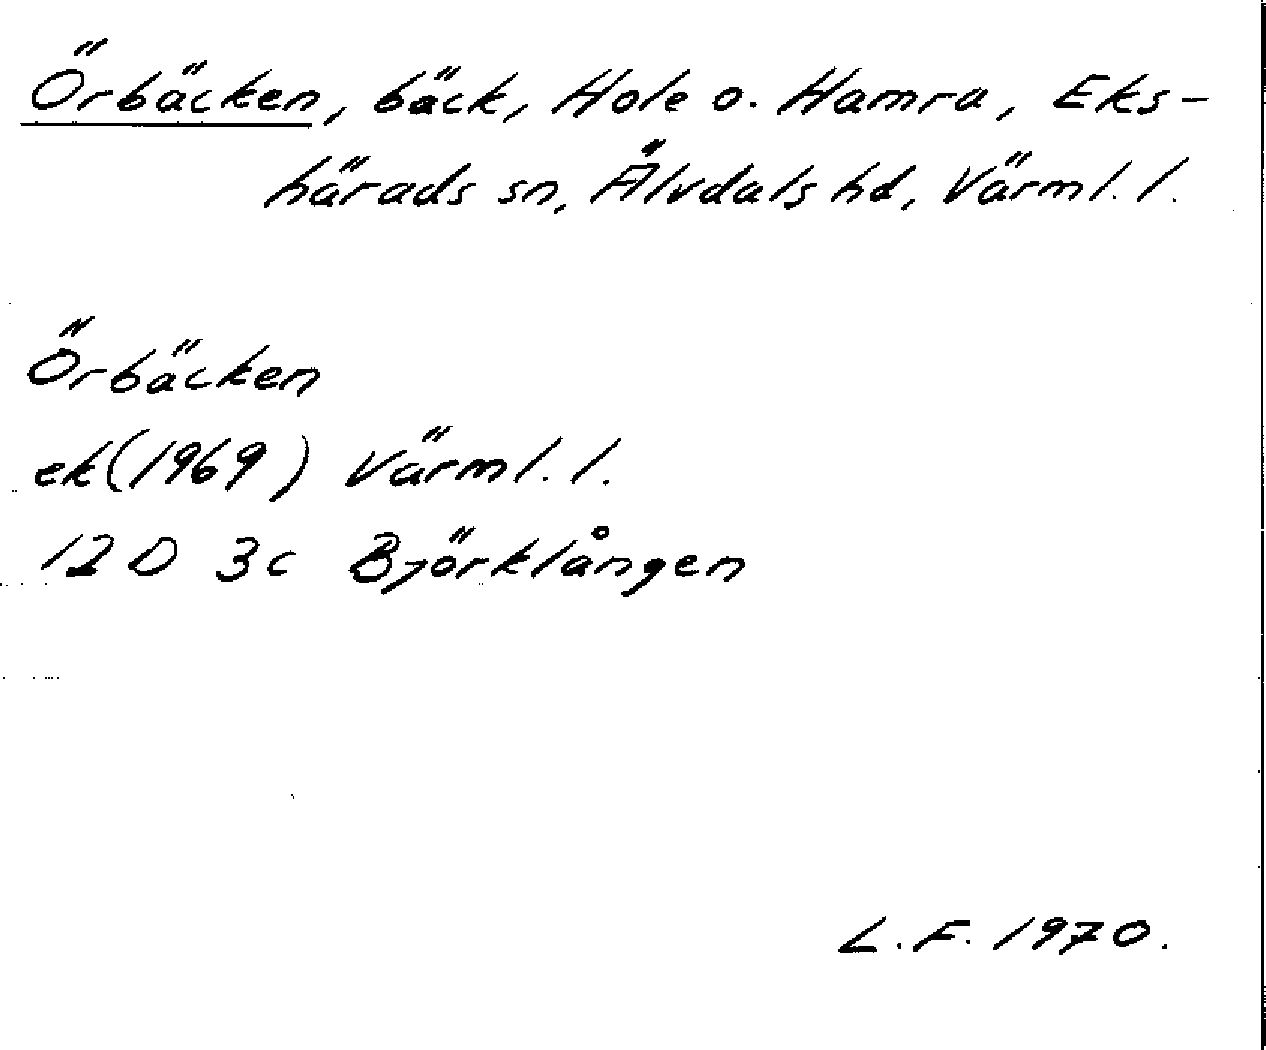 Örbäcken, bäck, Hole o. Hamra, Eks-
härads sn, Älvdals hd, Värml. l.
Örbäcken
ek(1969) Värml. l.
12 D 3c Björklången
L.F. 1970.